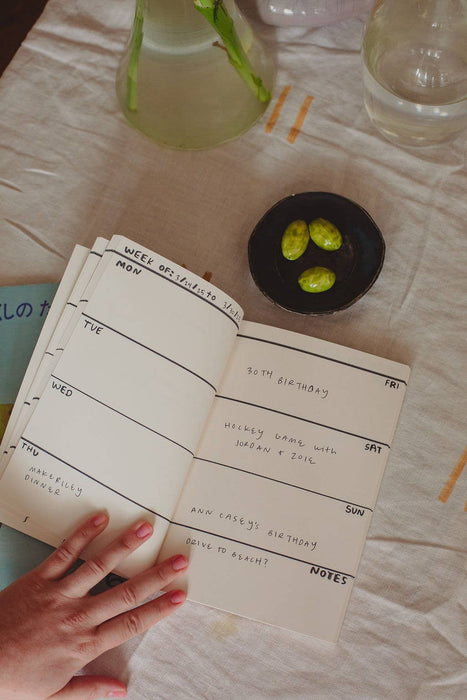 WEEK OF: 3/24/25 to
MON
TUE
WED
THU
MAKE RILEY
DINNER
FRI
30TH BIRTHDAY
SAT
HOCKEY GAME with
JORDAN + ZOIE
SUN
ANN CASEY'S BIRTHDAY
DRIVE TO BEACH?
NOTES
しの た